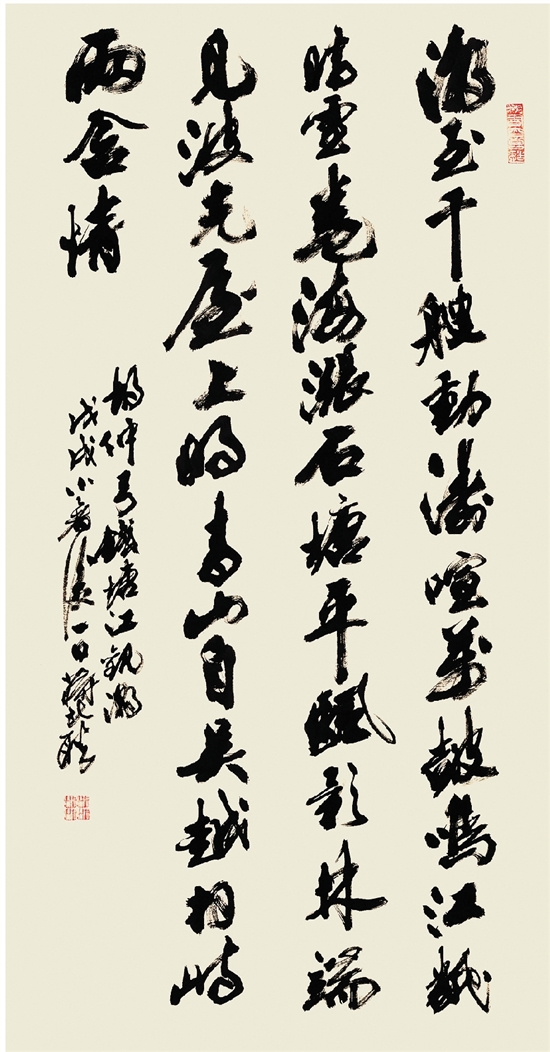 潮至千艘動濤喧萬鼓鳴江翻
晴雪卷海漲石塘平颿影林端
見波光屋上明青山自吳越相峙
兩含情
楊仲弓錢塘江觀潮
戊戌小暑後一日